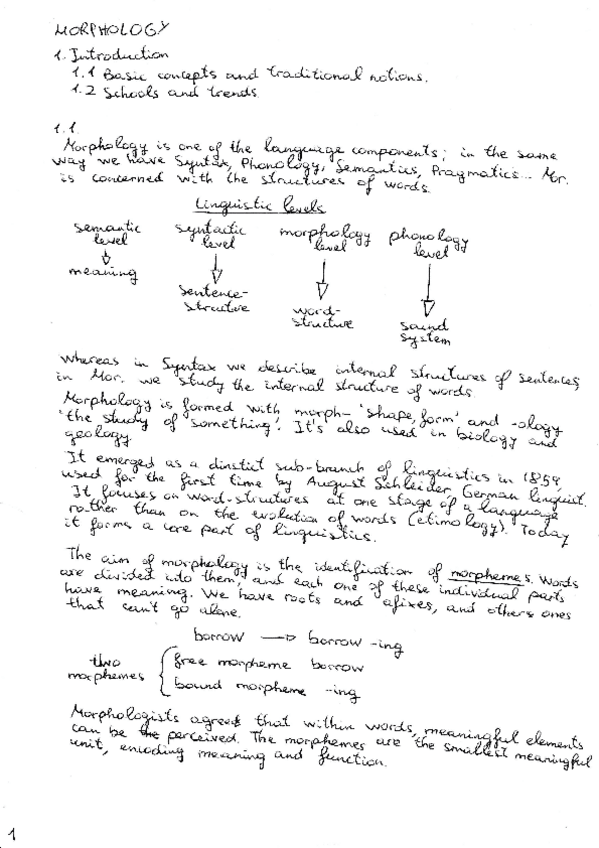 MORPHOLOGY
1. Introduction
1.1 Basic concepts and traditional notions.
1.2 Schools and trends
1.1.
Morphology is one of the language components; in the same
way we have Syntax, Phonology, Semantics, Pragmatics... Mor.
is concerned with the structures of words.
Linguistic levels
semantic level syntactic level morphology level phonology level
meaning
sentence-structure
word-structure
sound system
Whereas in Syntax we describe internal structures of sentences,
in Mor. we study the internal structure of words
Morphology is formed with morph- 'shape, form' and -ology
'the study of something'. It's also used in biology and
geology.
It emerged as a dinstict sub-branch of linguistics in 1859,
used for the first time by August Schleider, German linguist.
It focuses on word-structures at one stage of a language
rather than on the evolution of words (etimology). Today
it forms a core part of linguistics.
The aim of morphology is the identification of morphemes. Words
are divided into them, and each one of these individual parts
have meaning. We have roots and afixes, and others ones
that can't go alone.
borrow → borrow -ing
two morphemes { free morpheme borrow
bound morpheme -ing
Morphologists agree that within words, meaningful elements
can be perceived. The morphemes are the smallest meaningful
unit, encoding meaning and function.
1